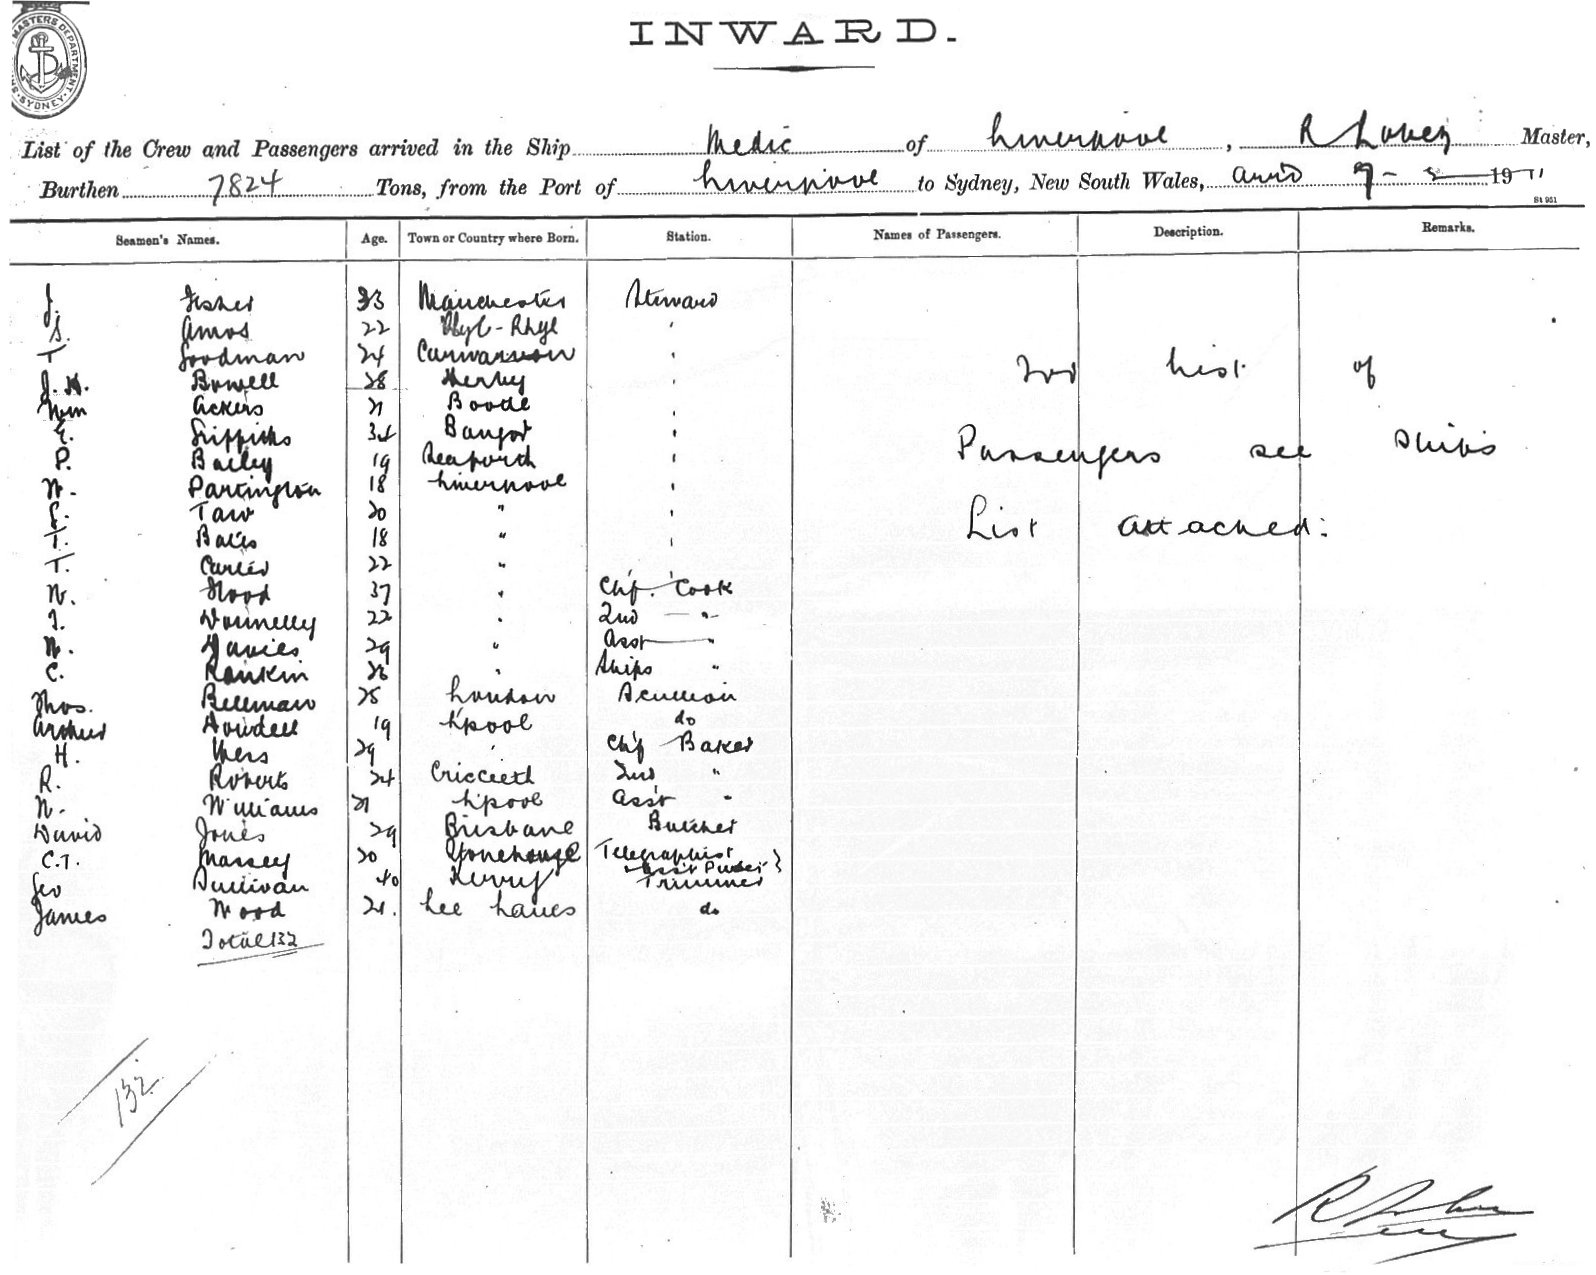 MASTERS DEPARTMENT
SYDNEY
INWARD.
List of the Crew and Passengers arrived in the Ship Medic of Liverpool, R Master,
Burthen 7824 Tons, from the Port of Liverpool to Sydney, New South Wales, arrd 9- 1911
St 951
Seamen's Names. Age. Town or Country where Born. Station. Names of Passengers. Description. Remarks.
J. Fisher 23 Manchester Steward
S. Amos 22 Rhyl - Rhyl "
T Goodman 24 Carnarvon "
J. H. Bowell 28 "
Wm Ackers 21 Bootle "
E. Griffiths 34 Bangor "
P. Bailey 19 Seaforth "
W. Partington 18 Liverpool "
Taw 20 " "
T. Bates 18 " "
T. Carter 22 "
W. Hood 37 " Chf. Cook
J. Donnelly 22 " 2nd — "
W. Davies 29 " Asst — "
C. Rankin 26 " Ships "
Thos. Bellman 28 London Scullion
Arthur Howdell 19 L'pool do
H. 29 " Chf Baker
R. Roberts 24 Criccieth 2nd "
W. Williams 21 L'pool Asst "
David Jones 29 Brisbane Butcher
C.T. Massey 20 Stonehouse Telegraphist
Asst Purser }
Geo Sullivan 40 Kerry Trimmer
James Wood 21. Lee Lanes do
Total 132
For List of
Passengers see Ship's
List attached.
132